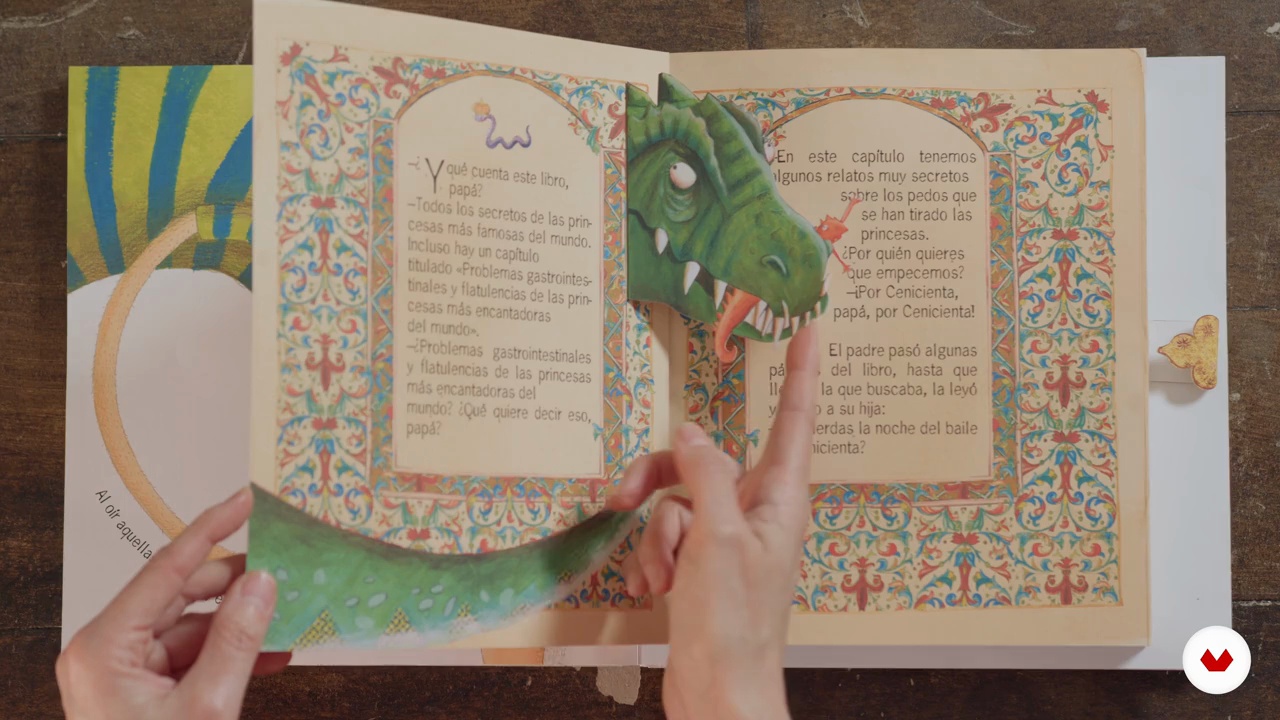 ¿Y qué cuenta este libro,
papá?
–Todos los secretos de las prin-
cesas más famosas del mundo.
Incluso hay un capítulo
titulado «Problemas gastrointes-
tinales y flatulencias de las prin-
cesas más encantadoras
del mundo».
–¿Problemas gastrointestinales
y flatulencias de las princesas
más encantadoras del
mundo? ¿Qué quiere decir eso,
papá?
–En este capítulo tenemos
algunos relatos muy secretos
sobre los pedos que
se han tirado las
princesas.
¿Por quién quieres
que empecemos?
–¡Por Cenicienta,
papá, por Cenicienta!
El padre pasó algunas
del libro, hasta que
la que buscaba, la leyó
a su hija:
la noche del baile
Al oír aquella